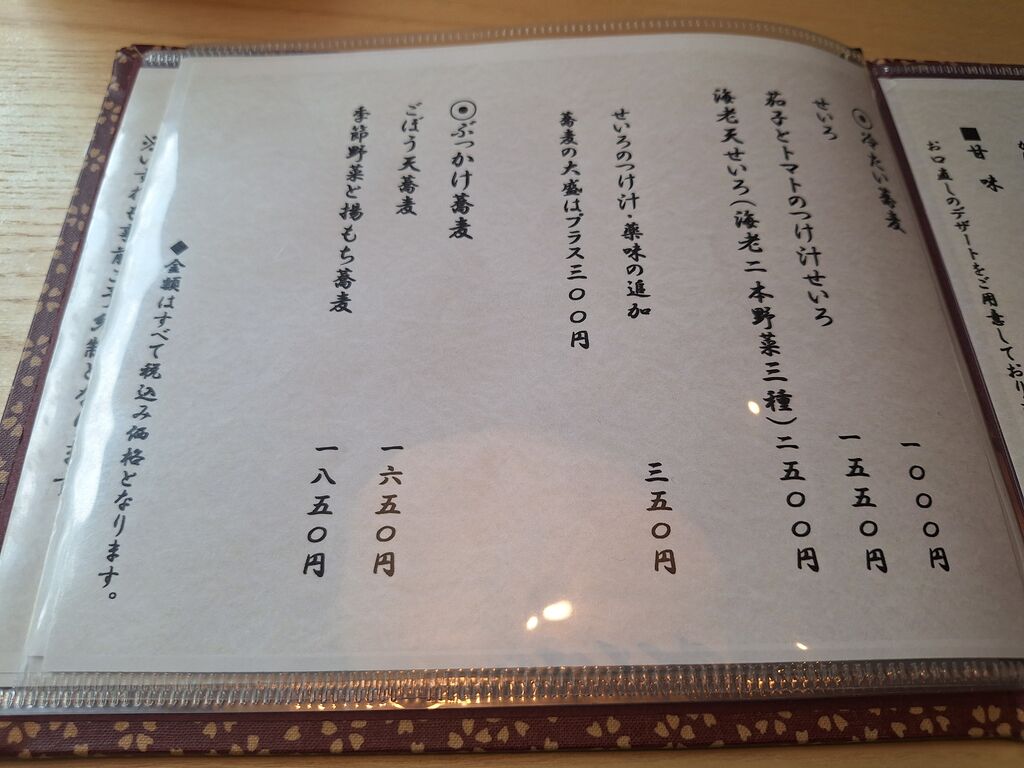 ■甘味
お口直しのデザートをご用意しており
◉冷たい蕎麦
せいろ 一〇〇〇円
茄子とトマトのつけ汁せいろ 一五五〇円
海老天せいろ(海老二本野菜三種) 二五〇〇円
せいろのつけ汁・薬味の追加 三五〇円
蕎麦の大盛はプラス三〇〇円
◉ぶっかけ蕎麦
ごぼう天蕎麦 一六五〇円
季節野菜と揚もち蕎麦 一八五〇円
◆金額はすべて税込み価格となります。